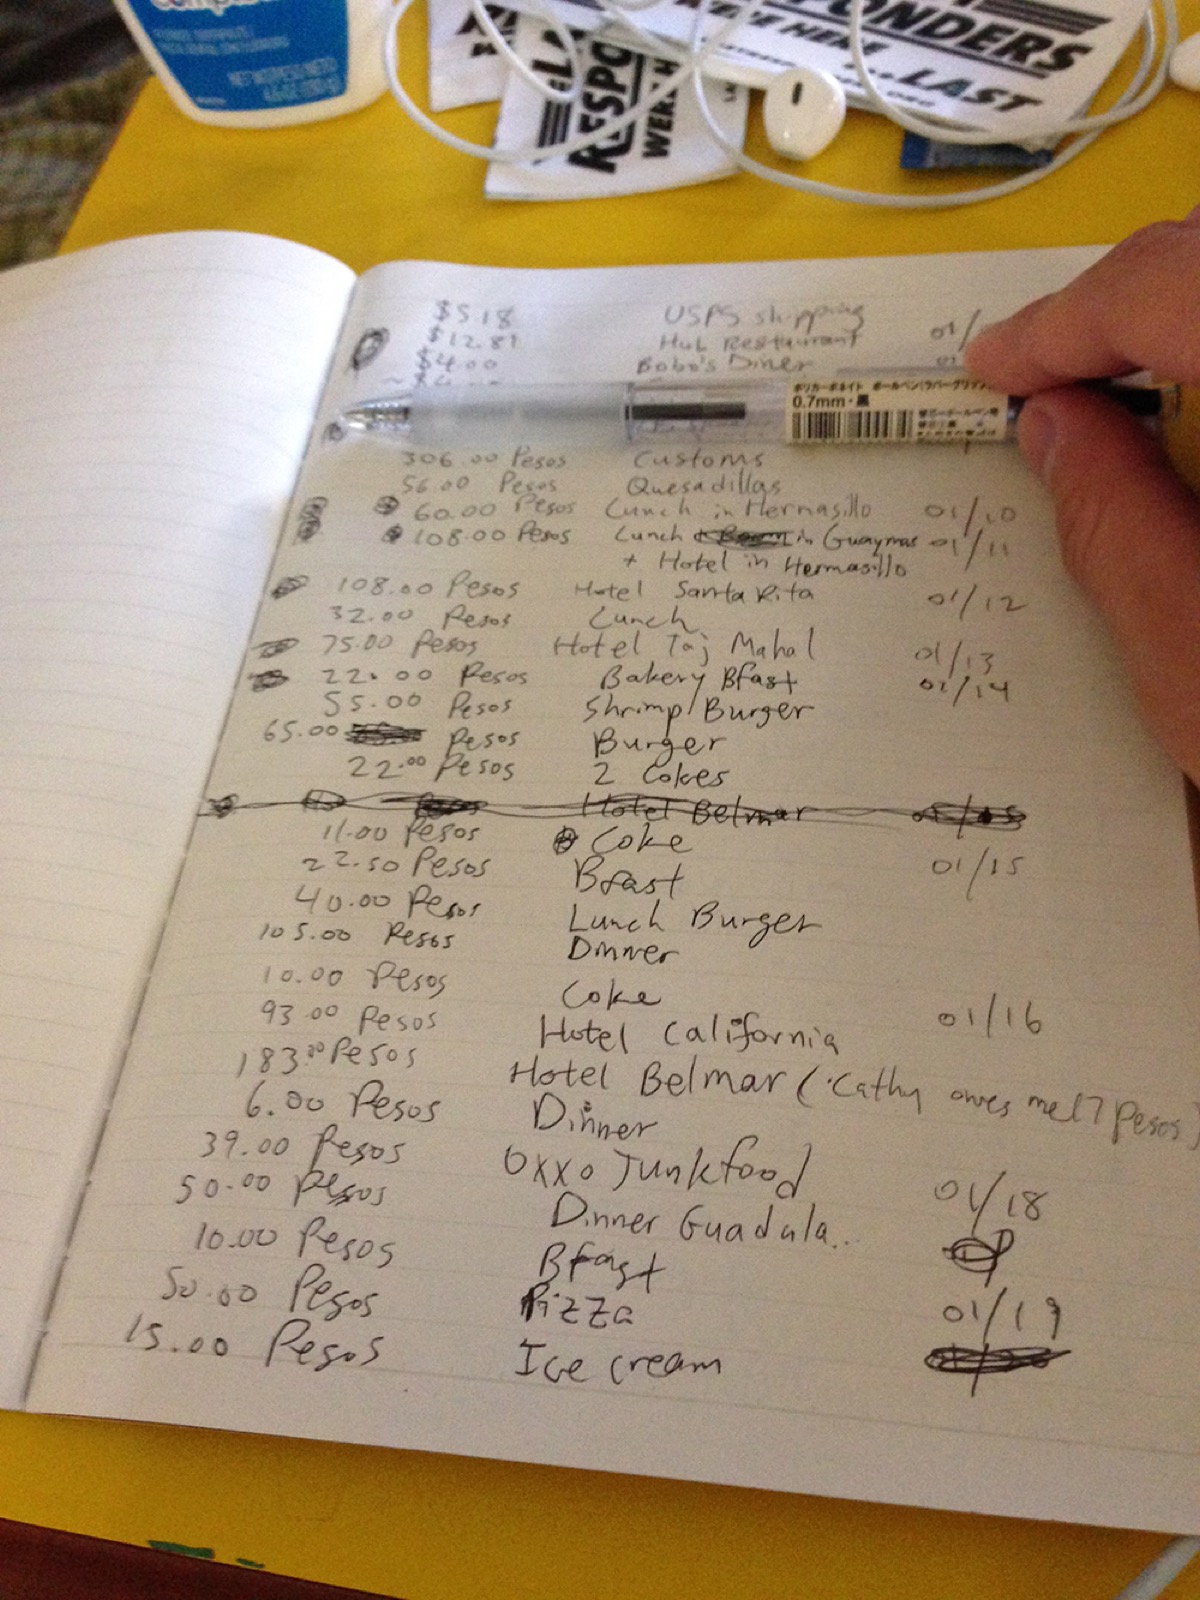 NET WT/PESO NETO
RESPO
WERE H
PONDERS
ERE HERE
LAST
$5.18 USPS shipping 01/
$12.81 Hub Restaurant
$4.00 Bobo's Diner
0.7mm・黒
306.00 Pesos Customs
56.00 Pesos Quesadillas
60.00 Pesos Lunch in Hermasillo 01/10
108.00 Pesos Lunch in Guaymas 01/11
+ Hotel in Hermasillo
108.00 Pesos Hotel Santa Rita 01/12
32.00 Pesos Lunch
75.00 Pesos Hotel Taj Mahal 01/13
22.00 Pesos Bakery Bfast 01/14
55.00 Pesos Shrimp Burger
65.00 Pesos Burger
22.00 Pesos 2 Cokes
Hotel Belmar
11.00 Pesos Coke
22.50 Pesos Bfast 01/15
40.00 Pesos Lunch Burger
105.00 Pesos Dinner
10.00 Pesos Coke
93.00 Pesos Hotel California 01/16
183.00 Pesos Hotel Belmar (Cathy owes me 17 pesos)
6.00 Pesos Dinner
39.00 Pesos Oxxo Junkfood
50.00 Pesos Dinner Guadala... 01/18
10.00 Pesos Bfast
50.00 Pesos Pizza 01/19
15.00 Pesos Ice cream